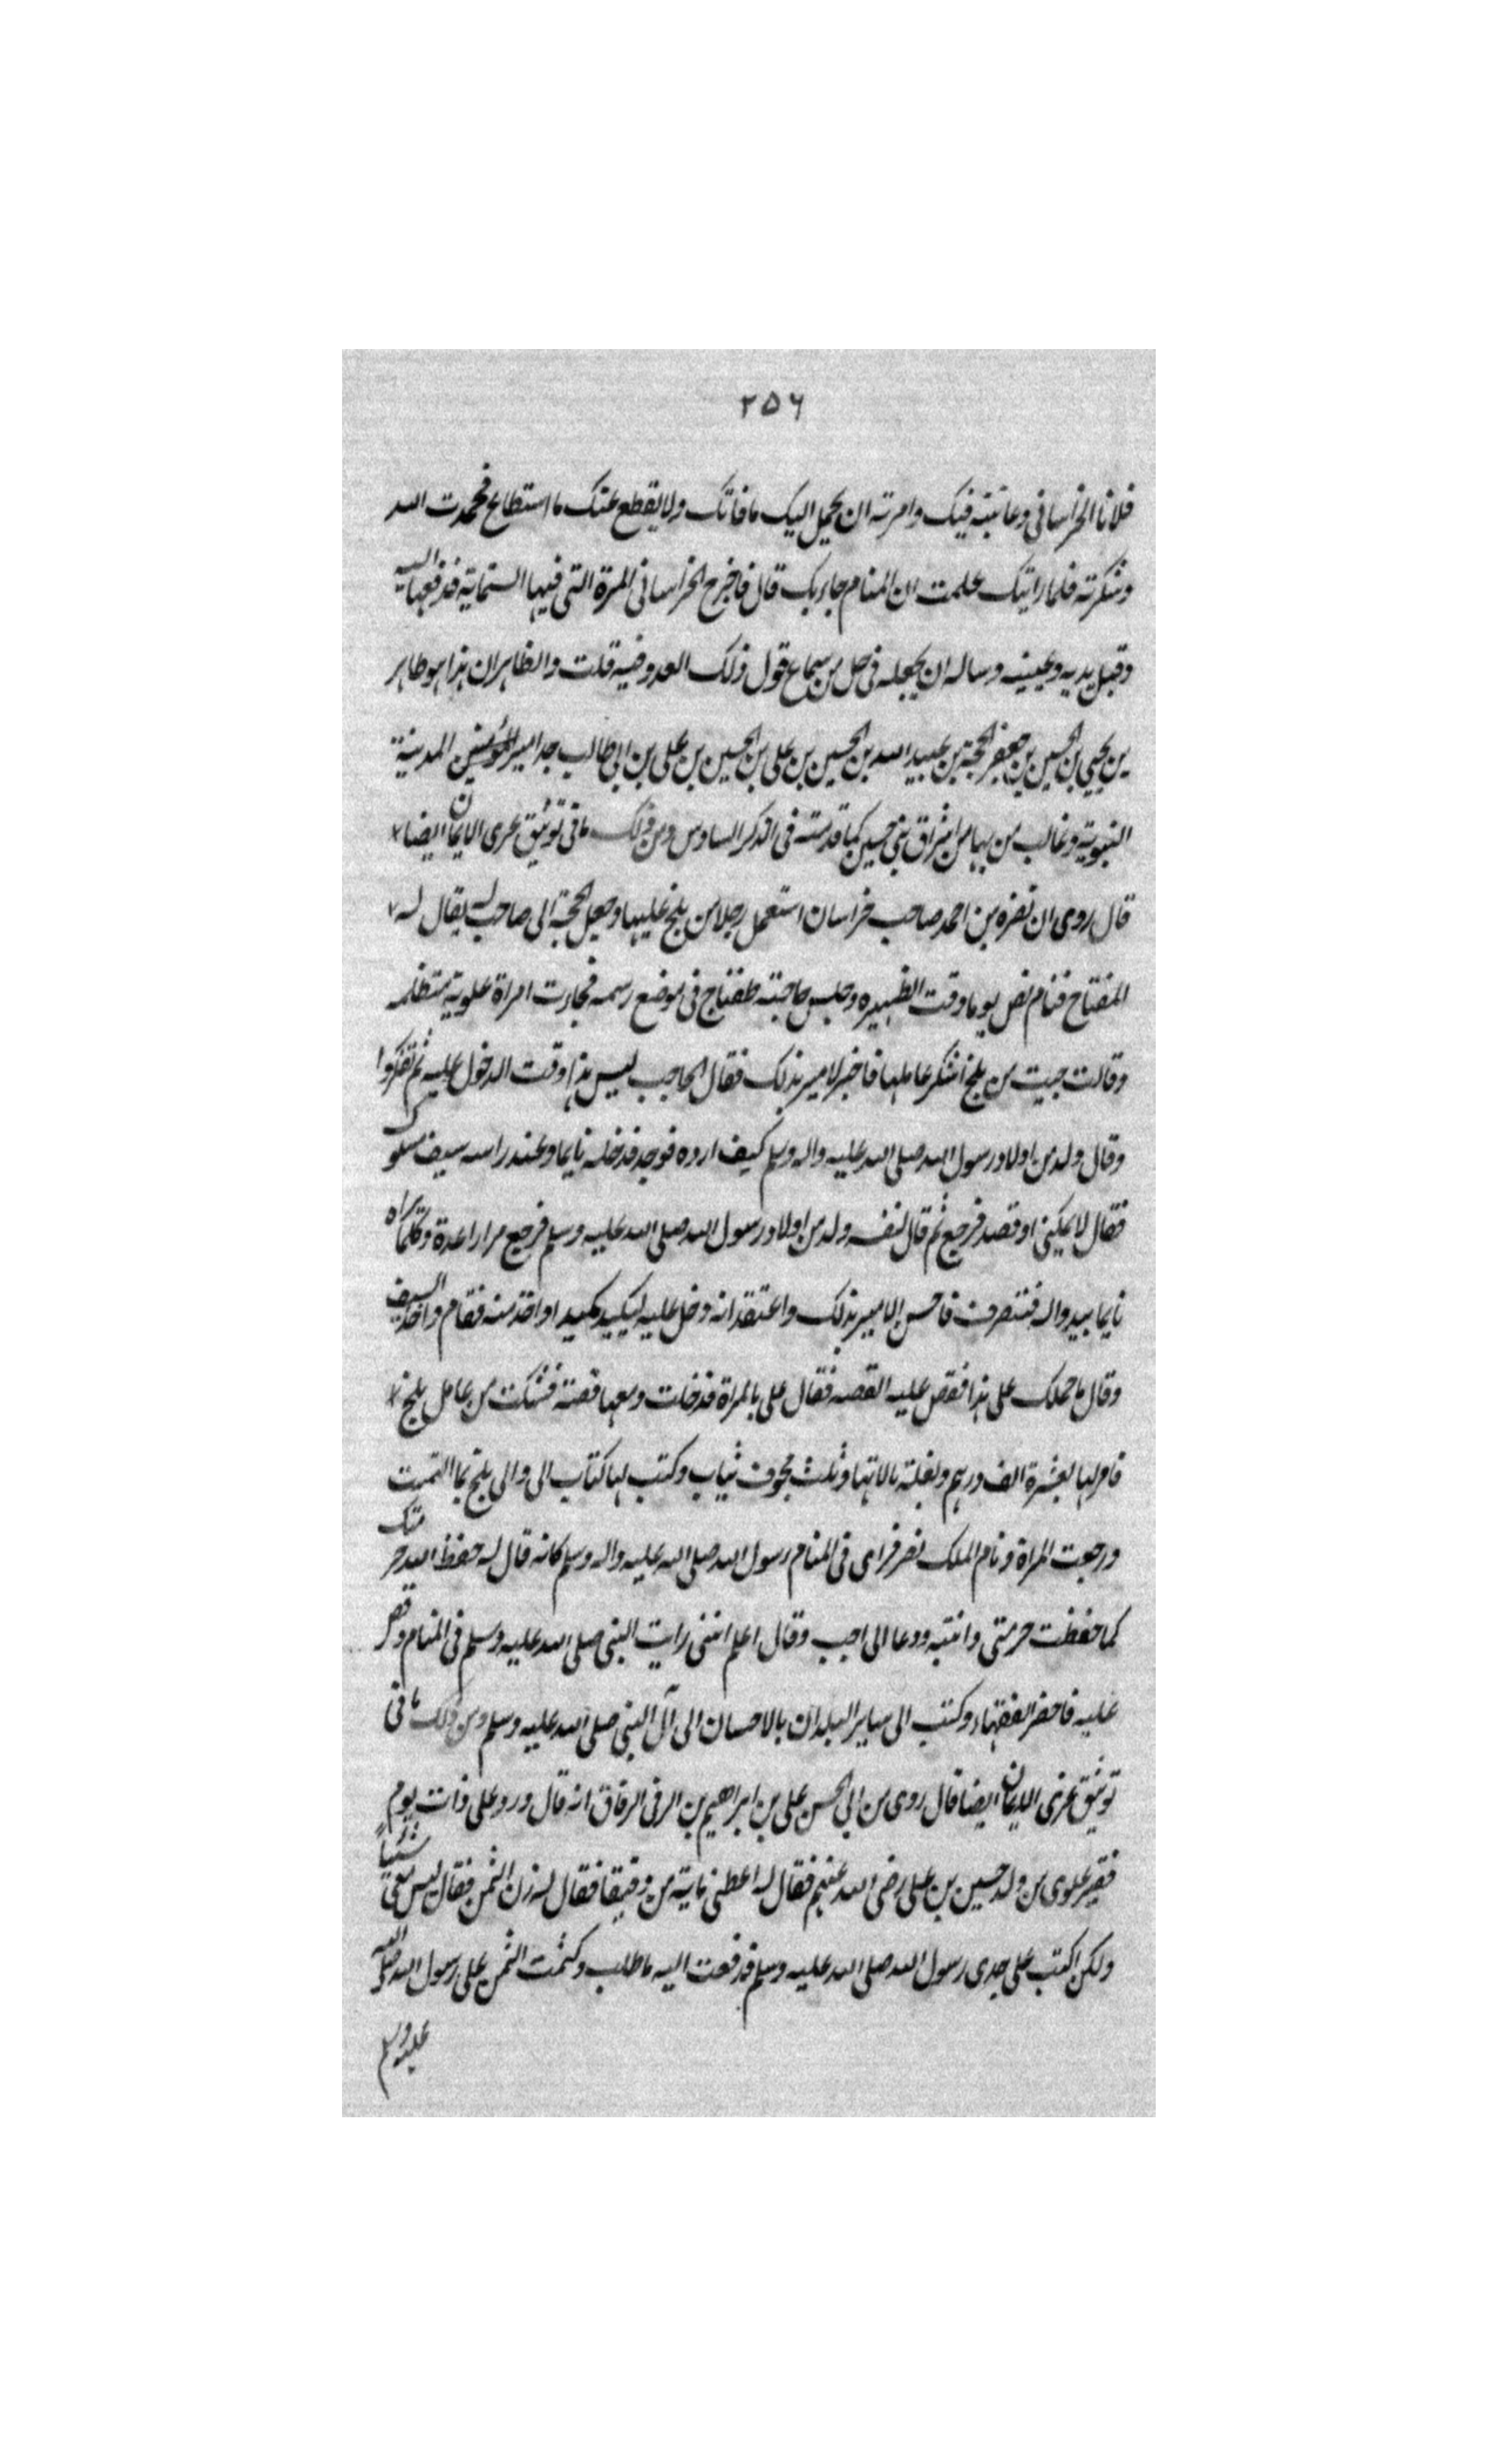 ٢٥٦
فلانا الخراسانى وعاتبته فيك وامرته ان يحمل اليك ما فاتك ولا يقطع عنك ما استطاع فحمدت الله
وشكرته فلما رايتك علمت ان المنام جاء بك قال فاخرج الخراسانى المرة التى فيها الستماية فدفعها اليه
وقبل يديه وعينيه وساله ان يجعله فى حل من سماع قول ذلك العدو فيه قلت والظاهر ان هذا هو طاهر
بن يحيى بن الحسين بن جعفر الحجة بن عبيد الله بن الحسين بن على بن الحسين بن على بن ابى طالب جد امير المدينة
النبوية وغالب من بها من اشراق بنى حسين كما قدمته فى الذكر السادس ومن ذلك ما فى توثيق عرى الايمان ايضا
قال روى ان نصره بن احمد صاحب خراسان استعمل رجلا من بلخ عليها وجعل الحجبة الى صاحب له يقال له
المفتاح فنام نصر يوما وقت الظهيره وجلس حاجبته طفتاج فى موضع رسمه فجاءت امراة علوية متظلمه
وقالت جيت من بلخ اشكر عاملها فاخبر الامير بذلك فقال الحاجب ليس هذا وقت الدخول عليه ثم تفكروا
وقال ولد من اولاد رسول الله صلى الله عليه واله وسلم كيف ارده فوجد فدخله نايما وعند راسه سيف مسلول
فقال لا يمكنى اوقصد فرجع ثم قال لنفسه ولد من اولاد رسول الله صلى الله عليه وسلم فرجع مرارا عدة وكلما يراه
نايما يبدو اله فينصرف فاحس الامير بذلك واعتقد انه دخل عليه ليكيد مكيد او اخذ منه فقام واخذ السيف
وقال ما حملك على هذا فقص عليه القصه فقال على بالمراة فدخلت ومعها قصة فشكت من عامل بلخ
فامر لها بعشرة الف درهم وبغلة بالاتها وثلث تخوت ثياب وكتب لها كتاب الى والى بلخ بما التمست
ورجعت المراة ونام الملك نصر فراى فى المنام رسول الله صلى الله عليه واله وسلم كانه قال له حفظ الله حرمتك
كما حفظت حرمتى وانتبه ودعا الى اجب وقال اعلم اننى رايت النبى صلى الله عليه وسلم فى المنام وقص
عليه فاحضر الفقهاء وكتب الى سائر البلدان بالاحسان الى آل النبى صلى الله عليه وسلم ومن ذلك ما فى
توثيق عرى الايمان ايضا قال روى من ابى الحسن على بن ابراهيم بن الرقى الرقاق انه قال ورد على ذات يوم
فقير علوى من ولد حسين بن على رضى الله عنهم فقال له اعطنى ماية من دقيقا فقال له زن الثمن فقال ليس معى شيئا
ولكن اكتب على جدى رسول الله صلى الله عليه وسلم فدفعت اليه ما طلب وكتمت الثمن على رسول الله صلى الله
عليه وسلم